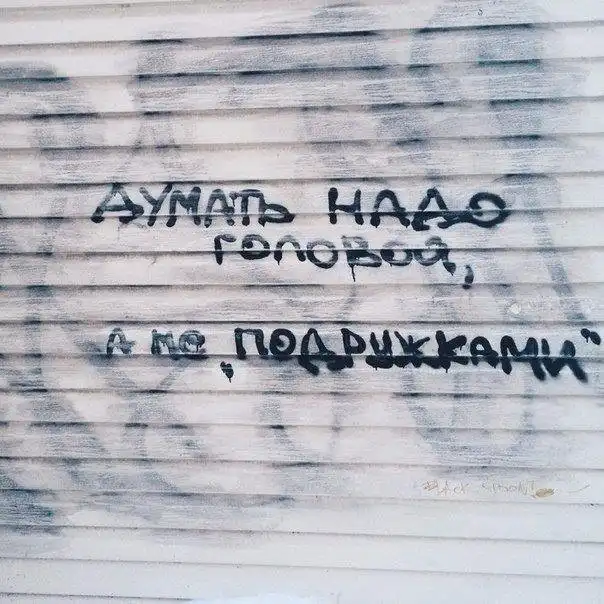 ДУМАТЬ НАДО
ГОЛОВОЙ,
А НЕ „ПОДРУЖКАМИ"